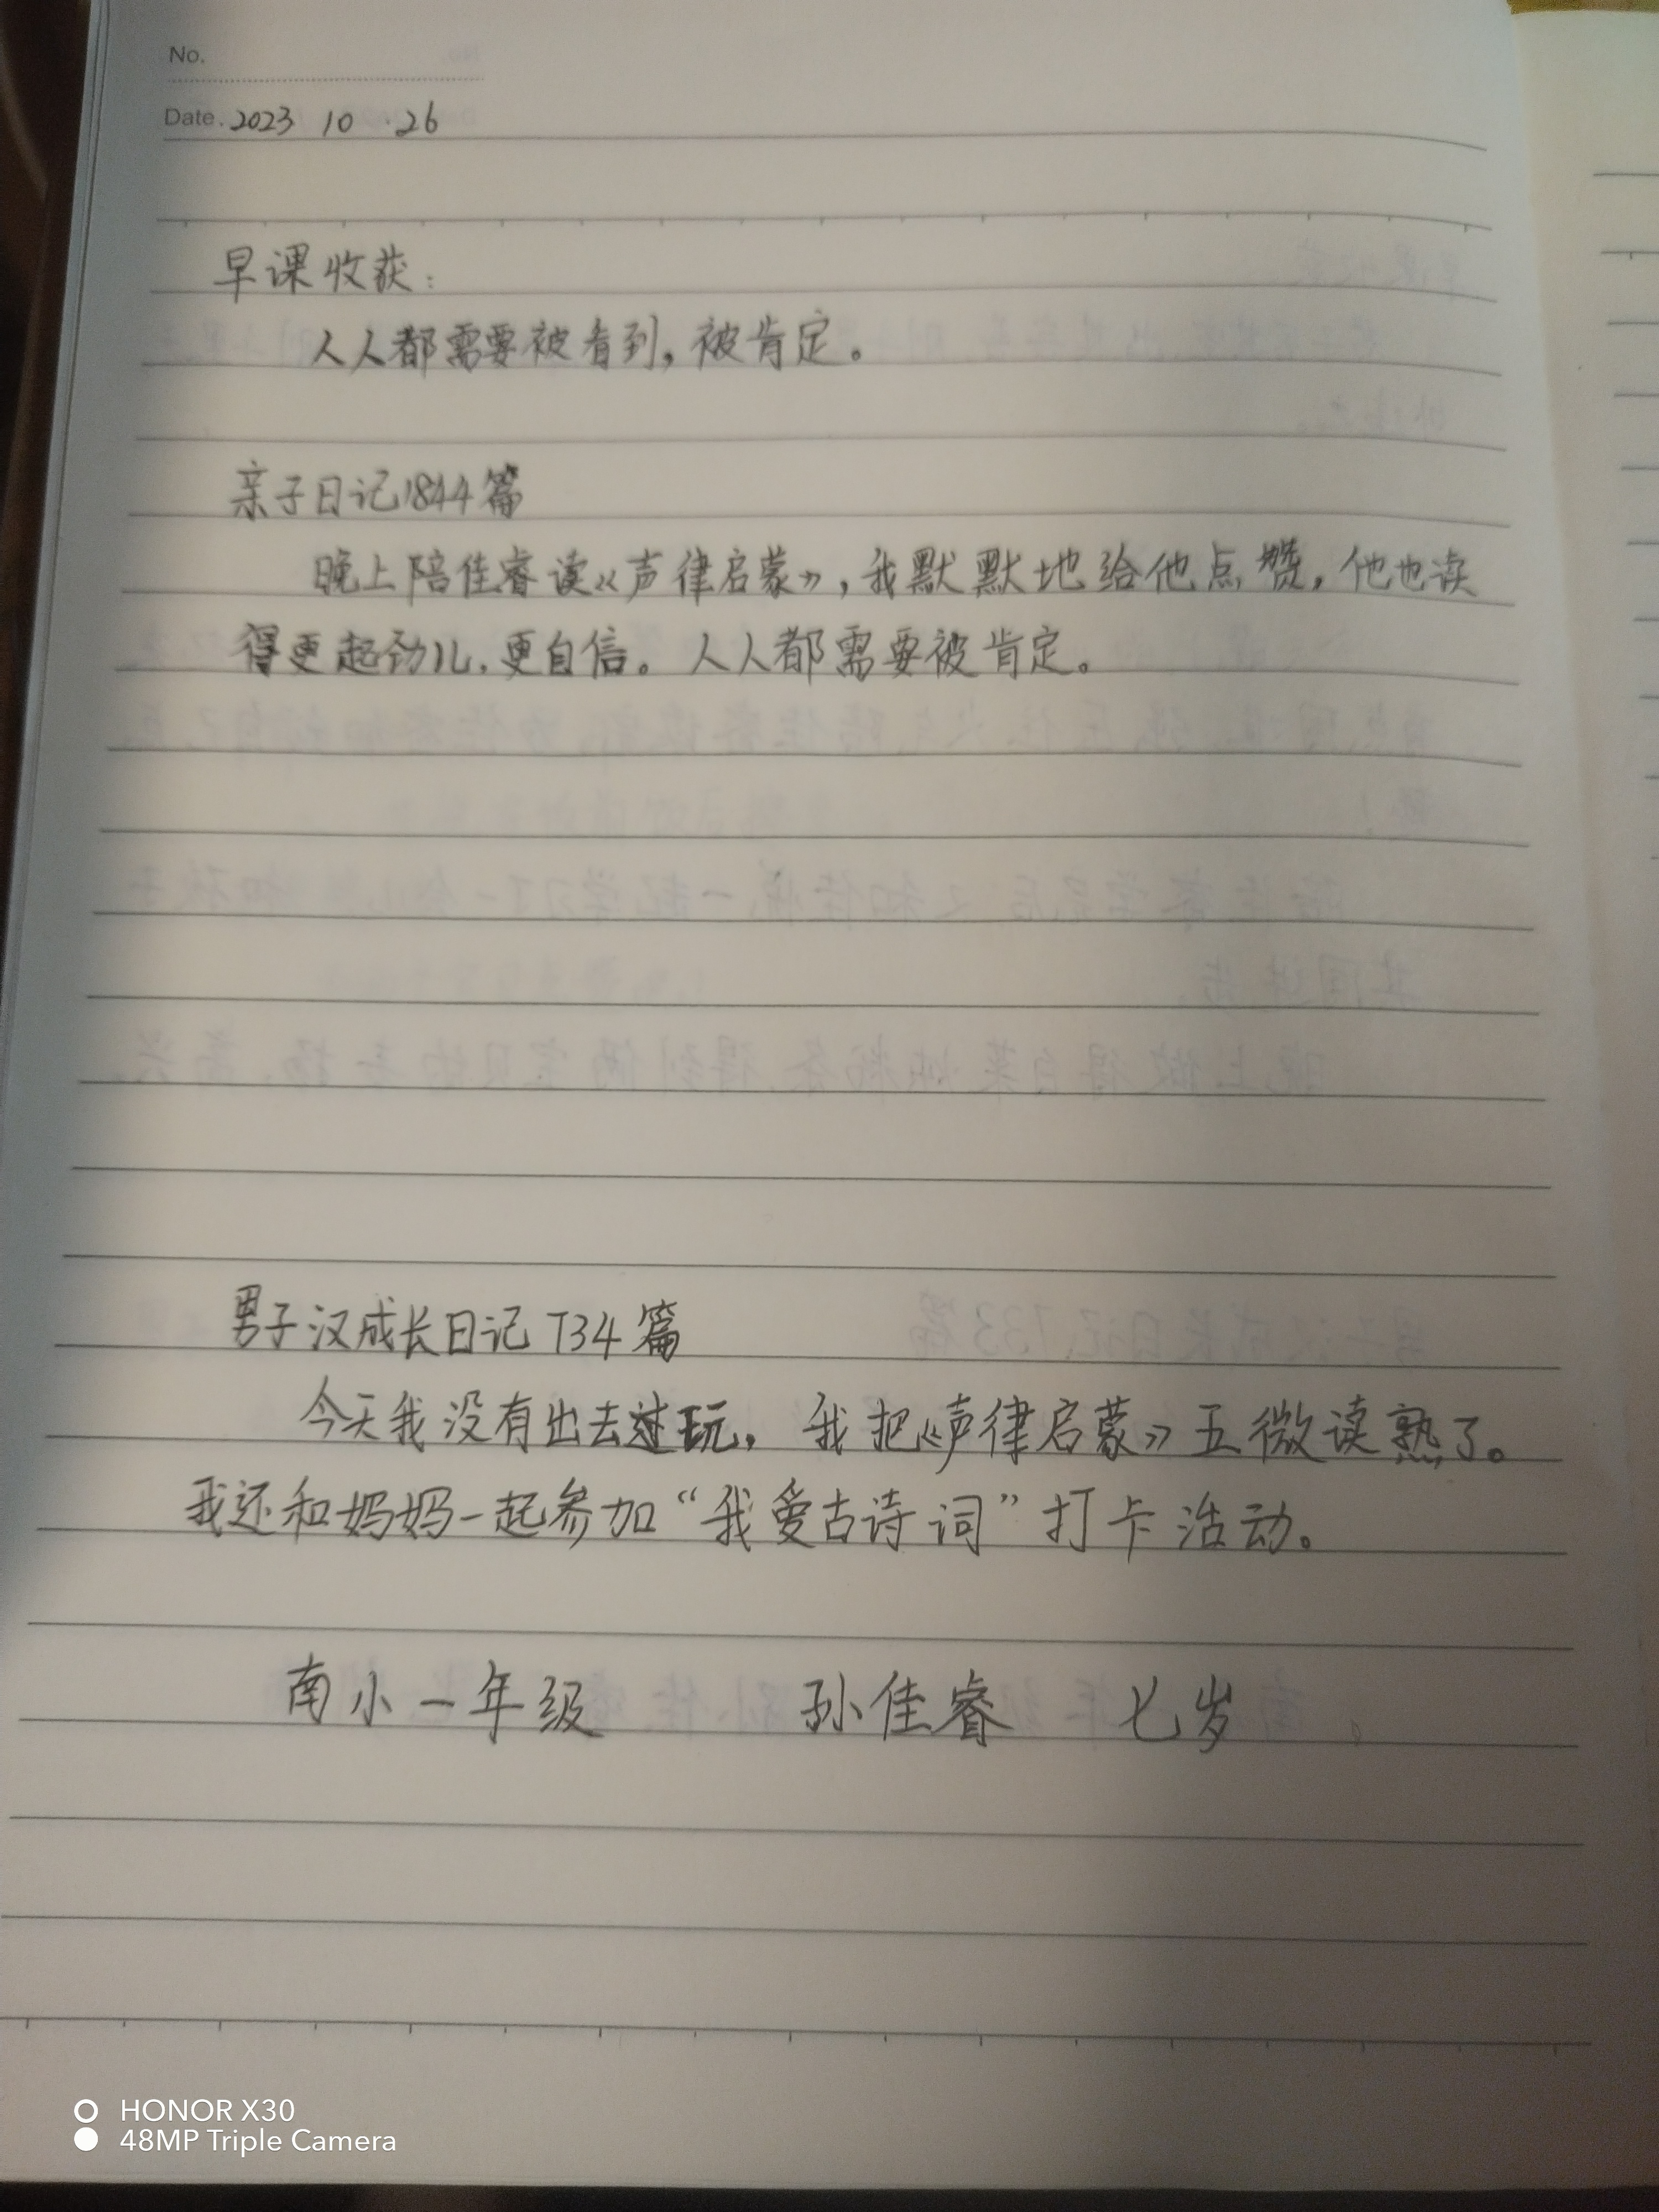 No.
Date. 2023 10 .26
早课收获:
人人都需要被看到,被肯定。
亲子日记1844篇
晚上陪佳睿读《声律启蒙》,我默默地给他点赞,他也读
得更起劲儿,更自信。人人都需要被肯定。
男子汉成长日记734篇
今天我没有出去过玩,我把《声律启蒙》五微读熟了。
我还和妈妈一起参加“我爱古诗词”打卡活动。
南小一年级 孙佳睿 七岁
HONOR X30
48MP Triple Camera